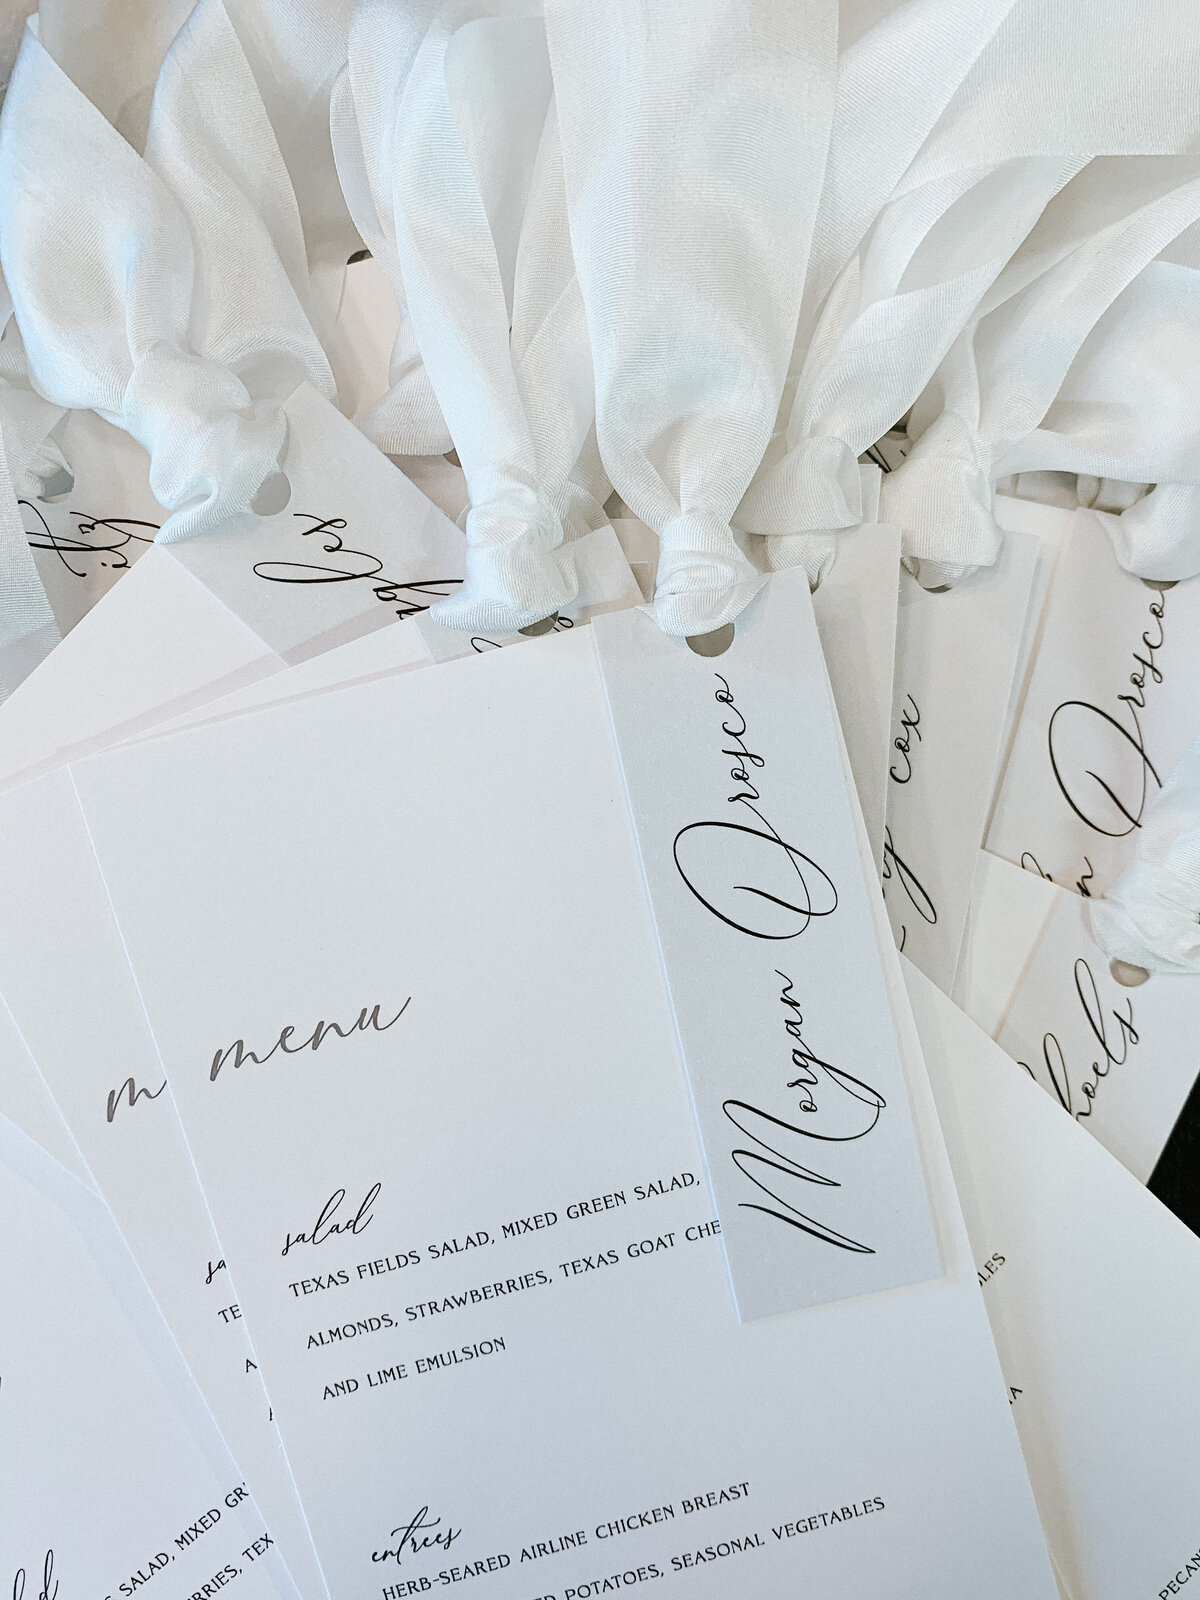 Morgan Orosco
menu
salad
TEXAS FIELDS SALAD, MIXED GREEN SALAD,
ALMONDS, STRAWBERRIES, TEXAS GOAT CHE
AND LIME EMULSION
entrees
HERB-SEARED AIRLINE CHICKEN BREAST
POTATOES, SEASONAL VEGETABLES
cox
Orosco
hoels
m
sa
TE
A
SALAD, MIXED GR
RRIES, TEX
LES
PECAN